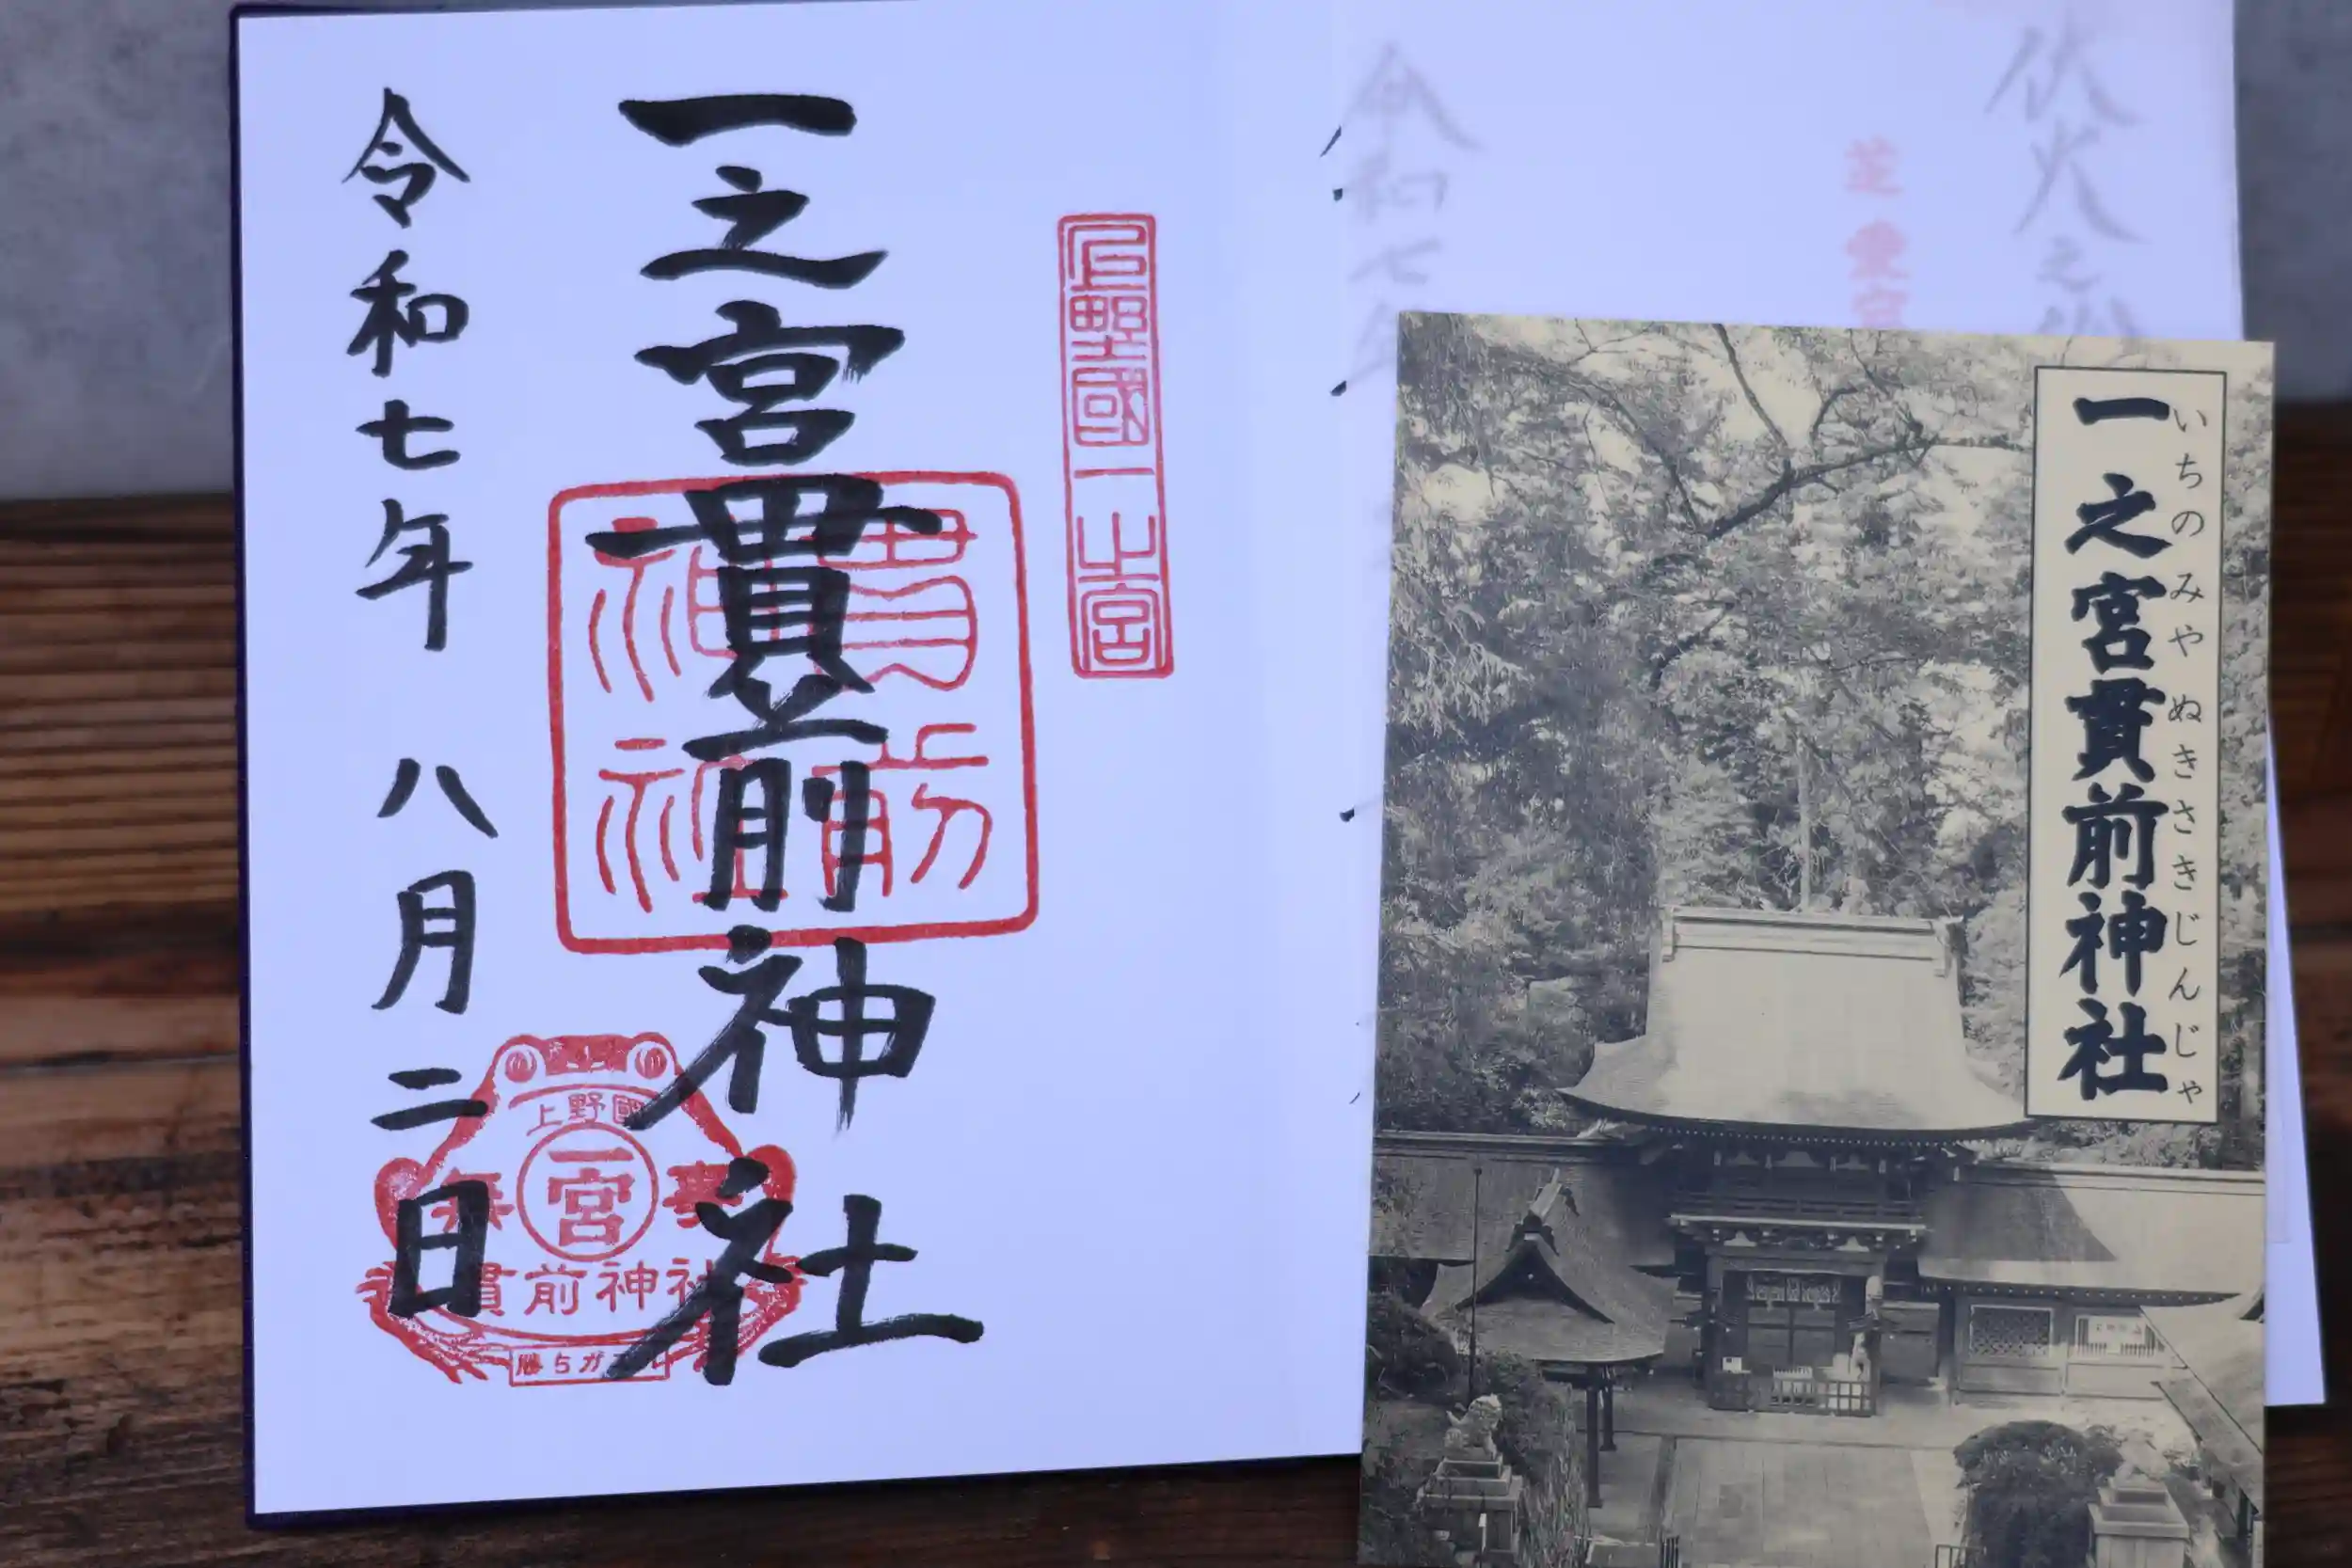 上野國一之宮
一之宮貫前神社
貫前
神社
令和七年 八月二日
上野國
一宮
無事
貫前神社
勝ちガエル
令和七年
一之宮貫前神社
いちのみやぬきさきじんじゃ